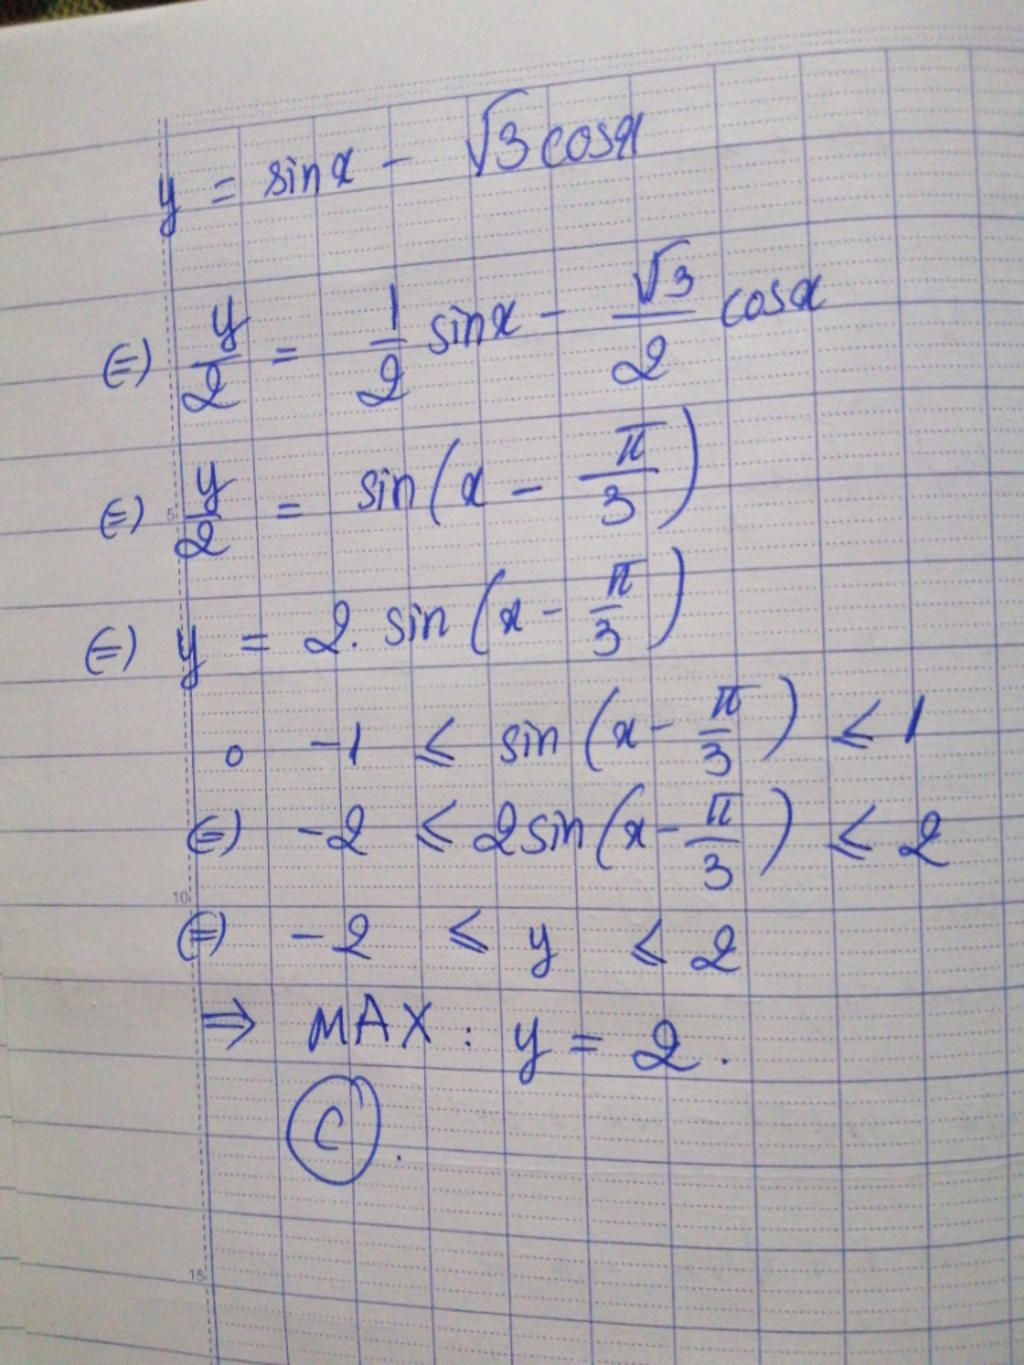 y = sinx - √3 cosx
(=) y/2 = 1/2 sinx - √3/2 cosx
(=) y/2 = sin(x - π/3)
5
(=) y = 2. sin(x - π/3)
o -1 ≤ sin(x - π/3) ≤ 1
(=) -2 ≤ 2sin(x - π/3) ≤ 2
10
(=) -2 ≤ y ≤ 2
⇒ MAX : y = 2.
C.
15